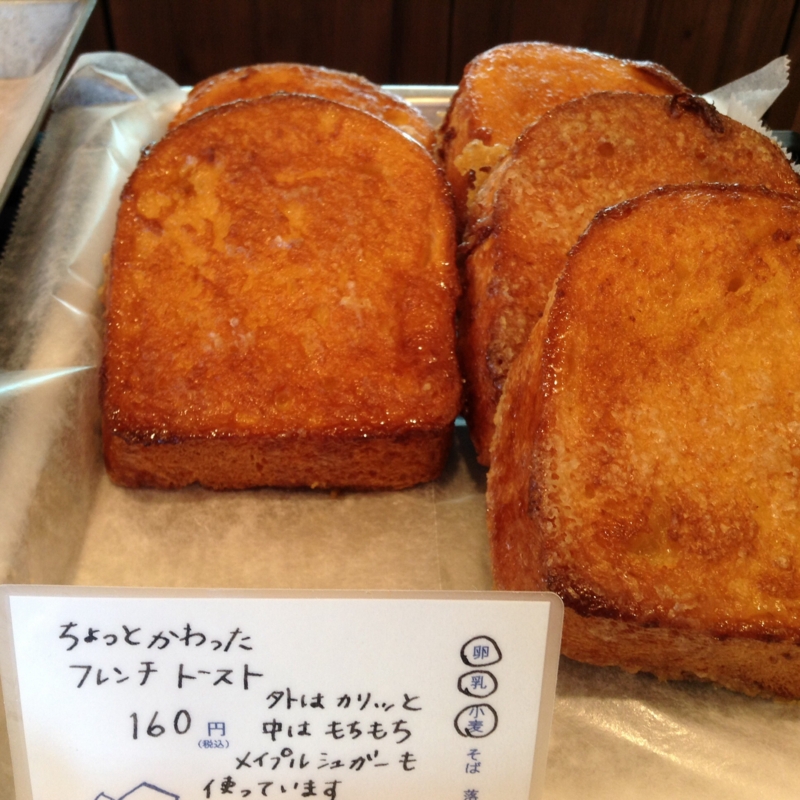 ちょっとかわった
フレンチトースト
160円
(税込)
外はカリッと
中はもちもち
メイプルシュガーも
使っています
卵
乳
小麦
そば
落